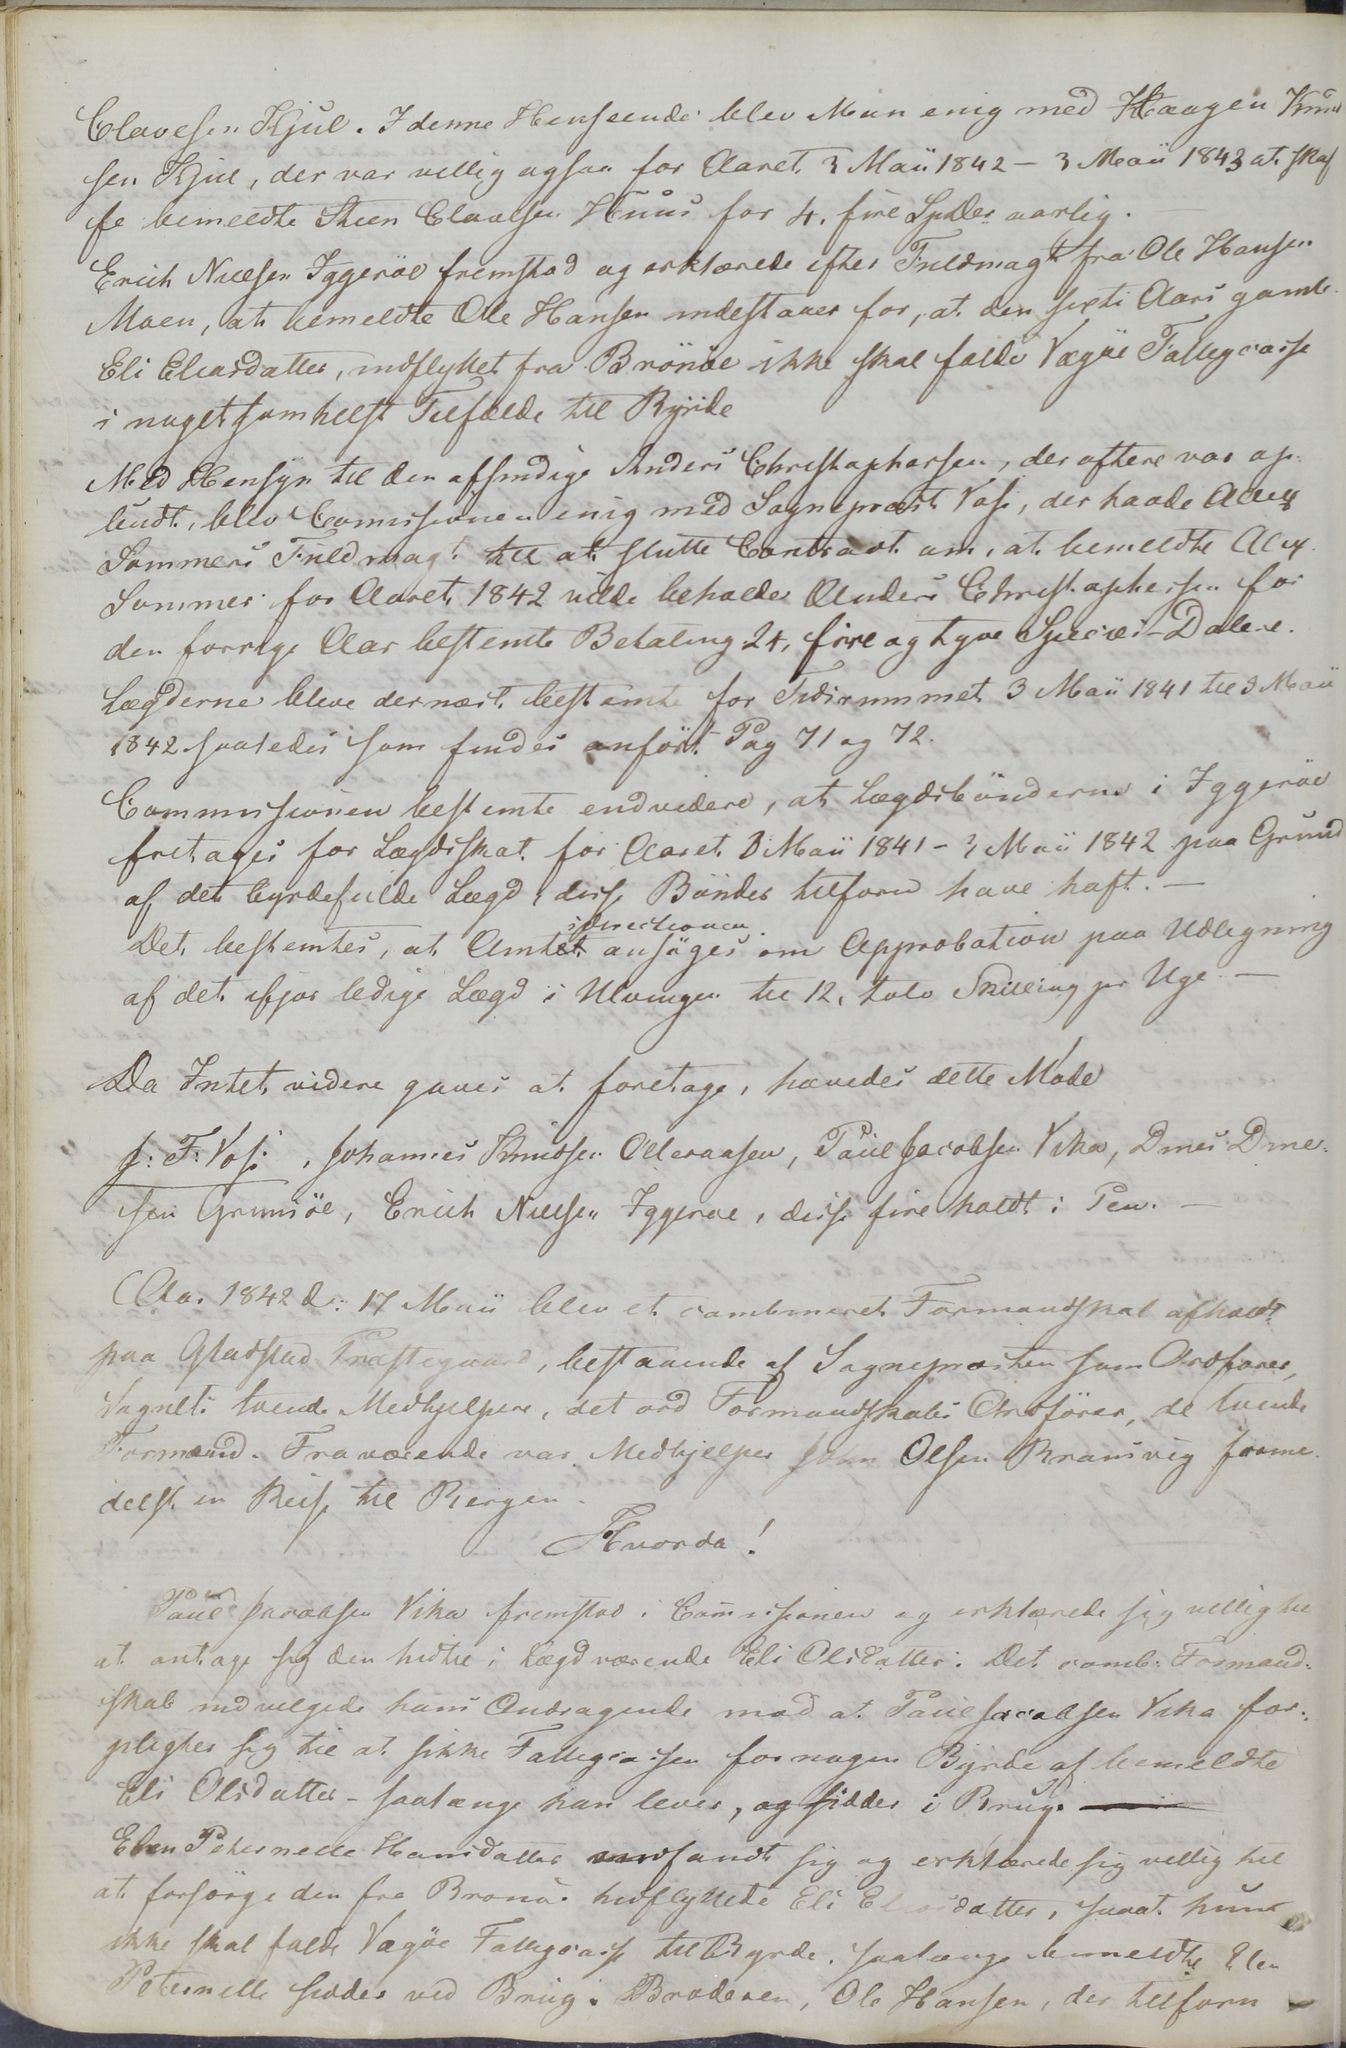 Olavesen Kjul. I denne Henseende blev Man enig med Haagen Knud
sen Kjul, der var villig ogsaa for Aaret 3 Maii 1842 – 3 Maii 1843 at skaf
fe bemeldte Steen Olavesen Huus for 4, fire Spdler aarlig.
Erich Nielsen Yggeröe fremstod og erklærede efter Fuldmagt fra Ole Hansen
Moen, at bemeldte Ole Hansen indestaaer for, at den sexti Aars gamle
Eli Eliasdatter, indflyttet fra Brönöe ikke skal falde Vægöe Fattigcasse
i nogetsomhelst Tilfælde til Byrde
Med Hensyn til den afsindige Anders Christophersen, der oftere var op-
budt, blev Comissionen enig med Sognepræst Vosi, der havde Alex
Sommers Fuldmagt til at slutte Contract om, at bemeldte Alex
Sommer for Aaret 1842 vilde beholde Anders Christophersen for
den forrige Aar bestemte Betaling 24, fire og tyve Species-Dalere.
Lægderne bleve dernæst bestemte for Tidsrummet 3 Maii 1841 til 3 Maii
1842 saaledes som findes anfört Pag 71 og 72.
Commissionen bestemte endvidere, at Lægdsbönderne i Yggeröe
fritages for Lægdsskat for Aaret 3 Maii 1841 – 3 Maii 1842 paa Grund
af det byrdefulde Lægd, disse Bönder tilforn have haft. –
Det bestemtes, at Amtsdirectionen ansöges om Approbation paa Udlegning
af det ifjor ledige Lægd i Ulvingen til 12, tolv Skilling pr Uge –
Da Intet videre gaves at foretage, hævedes dette Möde
J: F: Vosi, Johannes Knudsen Olderaasen, Paul Jacobsen Vika, Dines Dine-
sen Grimsöe, Erich Nielsen Yggeroe, disse fire holdt i Pen. –
Aar 1842 d: 17 Maii blev et combineret Formandskab afholdt
paa Gladstad Præstegaard, bestaaende af Sognepræsten som Ordförer,
Sognets tvende Medhjelpere, det ord Formandskabs Ordförer, de tvende
Formænd. Fraværende var Medhjelper John Olsen Kramvig forme-
delst en Reise til Bergen.
Hvorda!
Paul Jacobsen Vika fremstod i Comissionen og erklærede sig villig til
at antage sig den hidtil i Lægd værende Eli Olsdatter. Det comb: Formand-
skab indvilgede hans Andragende mod at Paul Jacobsen Vika for-
pligter sig til at sikke Fattigcassen for nogen Byrde af bemeldte
Eli Olsdatter – saalænge han lever, og sidder i Brug.
Elen Peternelle Hansdatter indfandt sig og erklærede sig villig til
at forsörge den fra Brönöe hidflyttede Eli Eliasdatter, saaat hun
ikke skal falde Vægöe Fattigcasse til Byrde, saalænge bemeldte Elen
Peternelle sidder ved Brug. Broderen, Ole Hansen, der tilforn